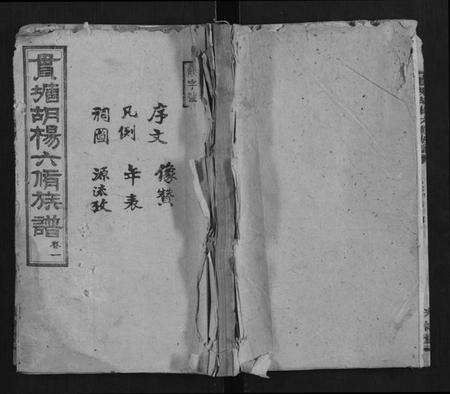 貫塘胡楊六脩族譜
卷一
序文 像贊
凡例 年表
祠圖 源流攷